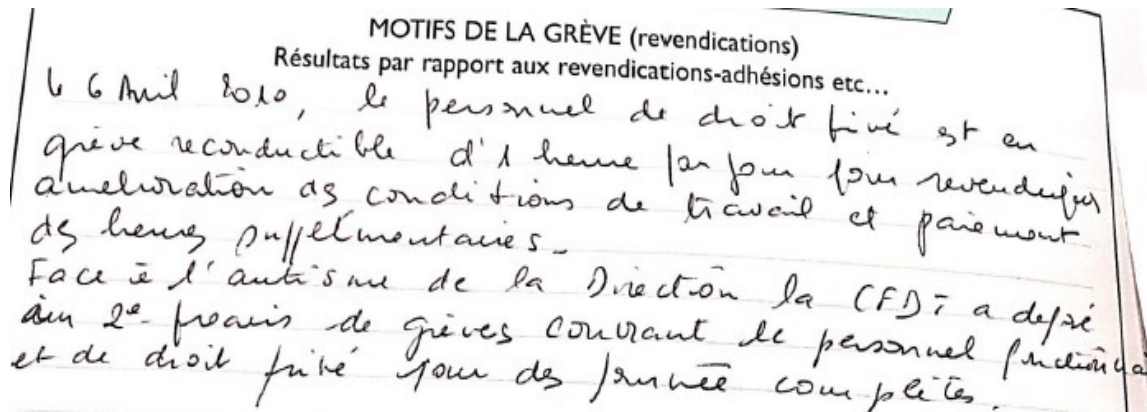 MOTIFS DE LA GRÈVE (revendications)
Résultats par rapport aux revendications-adhésions etc...
Le 6 Avril 2010, le personnel de droit privé est en
grève reconductible d'1 heure par jour pour revendiquer
amelioration des conditions de travail et paiement
des heures supplémentaires.
Face à l'autisme de la Direction la CFDT a déposé
un 2e préavis de grèves couvrant le personnel fonctionna
et de droit privé pour des journée complètes.